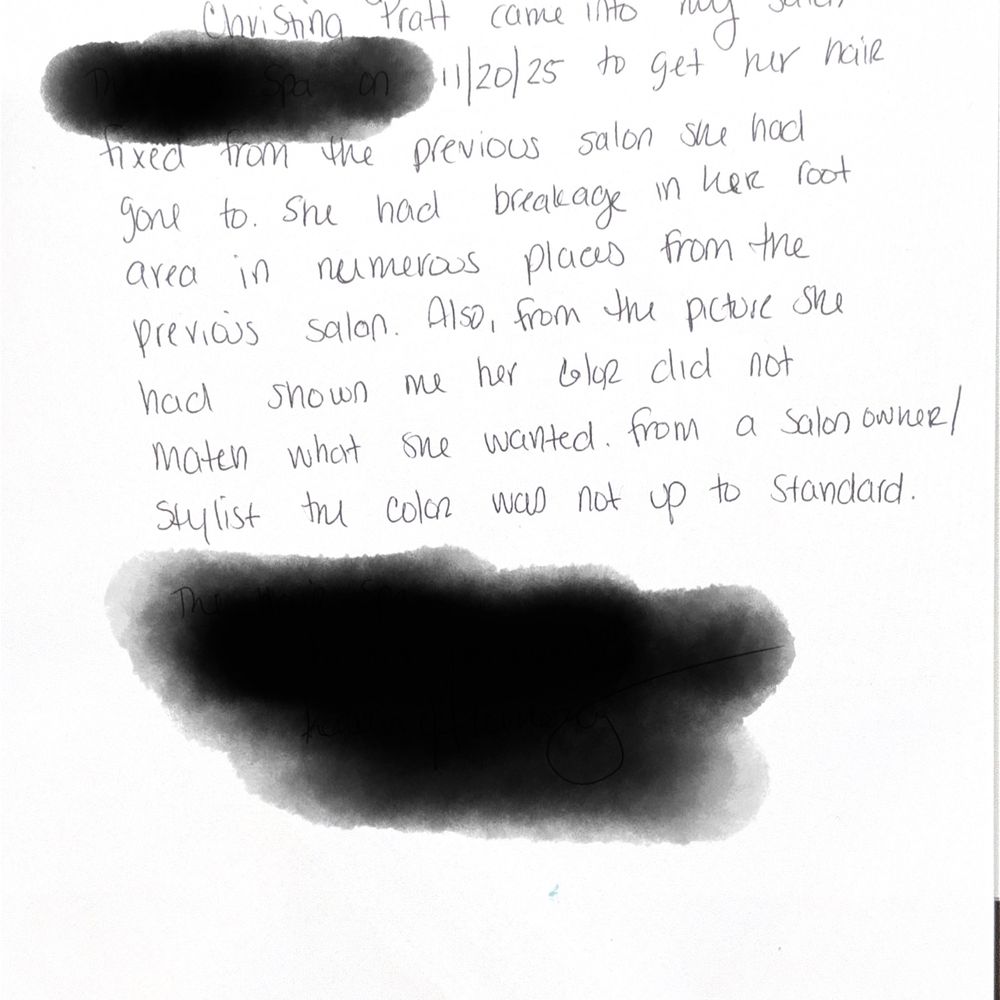 Christina Pratt came into my salon
on 11/20/25 to get her hair
fixed from the previous salon she had
gone to. She had breakage in her root
area in numerous places from the
previous salon. Also, from the picture she
had shown me her color did not
match what she wanted. from a salon owner/
stylist the color was not up to standard.